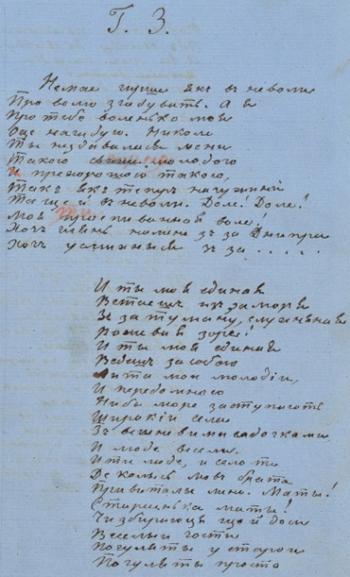 Г. З.
Немає гирше якъ въ неволи
Про волю згадувать. А я
Про тебе воленько моя
Оце нагадую. Николи
Ты не здавалася мени
Такою свіжо молодою
И прехорошою такою,
Такъ якъ теперъ на чужині
Та ще й въ неволи. Доле! Доле!
Моя проспиваная воле!
Хочъ глянь на мене зъ за Дніпра
Хочъ усмихнися зъ за .....
И ты моя єдиная
Встаешъ изъ за моря
Зъ за туману, слухняная
Рожевая зоре!
И ты моя єдиная
Ведешъ за собою
Лита мои молодіи,
И передо мною
Ниби море заступають
Широкіи села
Зъ вишневими садочками
И люде весели.
И ти люде, и село те
Де колысь мовъ брата
Привитали мене. Мати!
Старенька мати!
Чи збираюцця ще й доси
Веселыи гости
Погуляты у старои
Погуляты просто